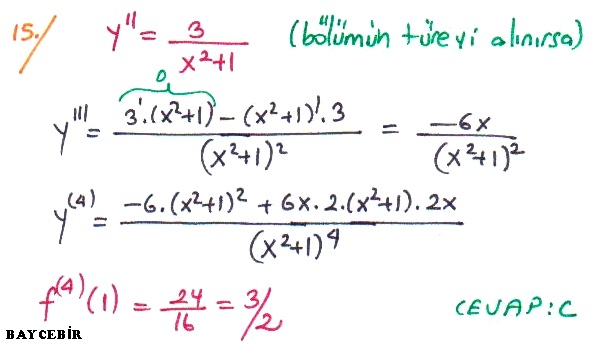 15./ y'' = 3/(x²+1) (bölümün türevi alınırsa)
0
y''' = (3'.(x²+1) - (x²+1)'.3)/(x²+1)² = -6x/(x²+1)²
y⁽⁴⁾ = (-6.(x²+1)² + 6x.2.(x²+1).2x)/(x²+1)⁴
f⁽⁴⁾(1) = 24/16 = 3/2 CEVAP:C
BAYCEBİR